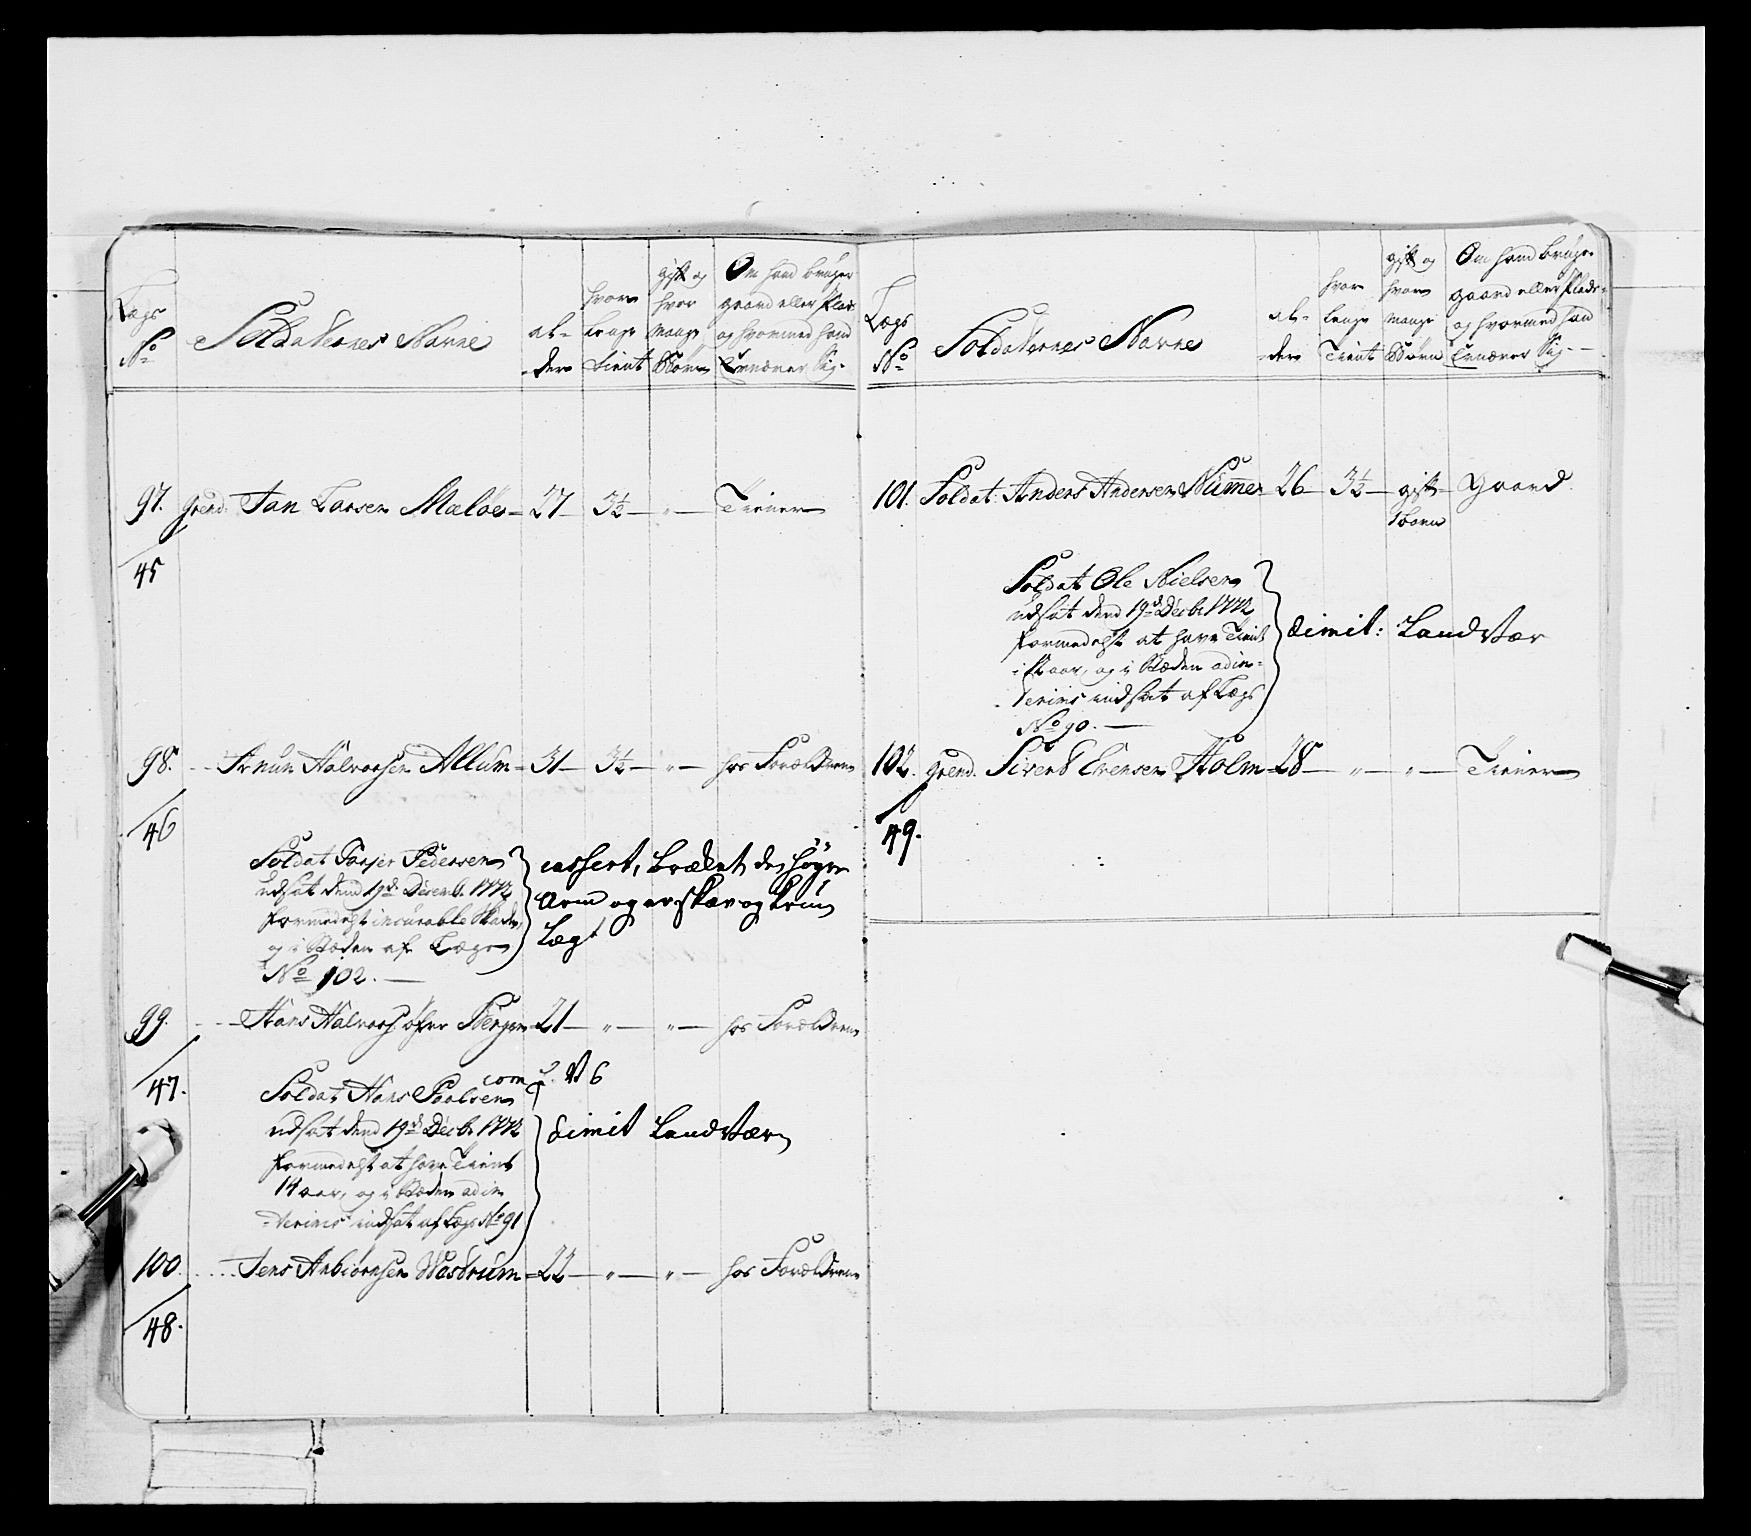 Lægs
No
Soldaternes Navne
al-
der
hvor
lenge
tient
gift og
hvor
mange
Børn
Om hand bruger
gaard eller Plads
og hvormed hand
Ernærer Sig.
97. Grend. Jan Larsen Maløe 27 3½ " Tiener
45
98. Arnun Halvorsen Allum 31 3½ " hos Forældrene
46
Soldat Torger Pedersen
udsat dend 19de Decemb. 1772
formedelst incurable Skade,
og i Stæden af Lægs
No 102.
cassert, brækket den høyre
Arm og er skæv og krum
Lagt
99. Hans Halvors. øfre Bergen 21 " " hos Forældrene
47.
com J. No 6
Soldat Hans Poulsen
udsat dend 19de Decbr. 1772
formedelst at have Tient
14 aar, og i Stæden ad in-
terims indsat af Lægs No 91
dimit Landværn
100. Jens Anbiørnsen Wastrum 22 " " hos Forældrene
48.
Lægs
No
Soldaternes Navne
al-
der
hvor
lenge
Tient
gift og
hvor
mange
Børn
Om hand bruger
gaard eller Plads
og hvormed hand
Ernærer Sig.
101. Soldat Anders Andersen Nummer 26 3½ gift Gaard
1 barn
Soldat Ole Nielsen
udsat dend 19de Decbr. 1772
formedelst at have Tient
aar, og i Stæden ad in-
terims indsat af Lægs
No 90.
dimit: Landvær
102. Grend. Sivert Evensen Holm 28 " " Tiener
49.